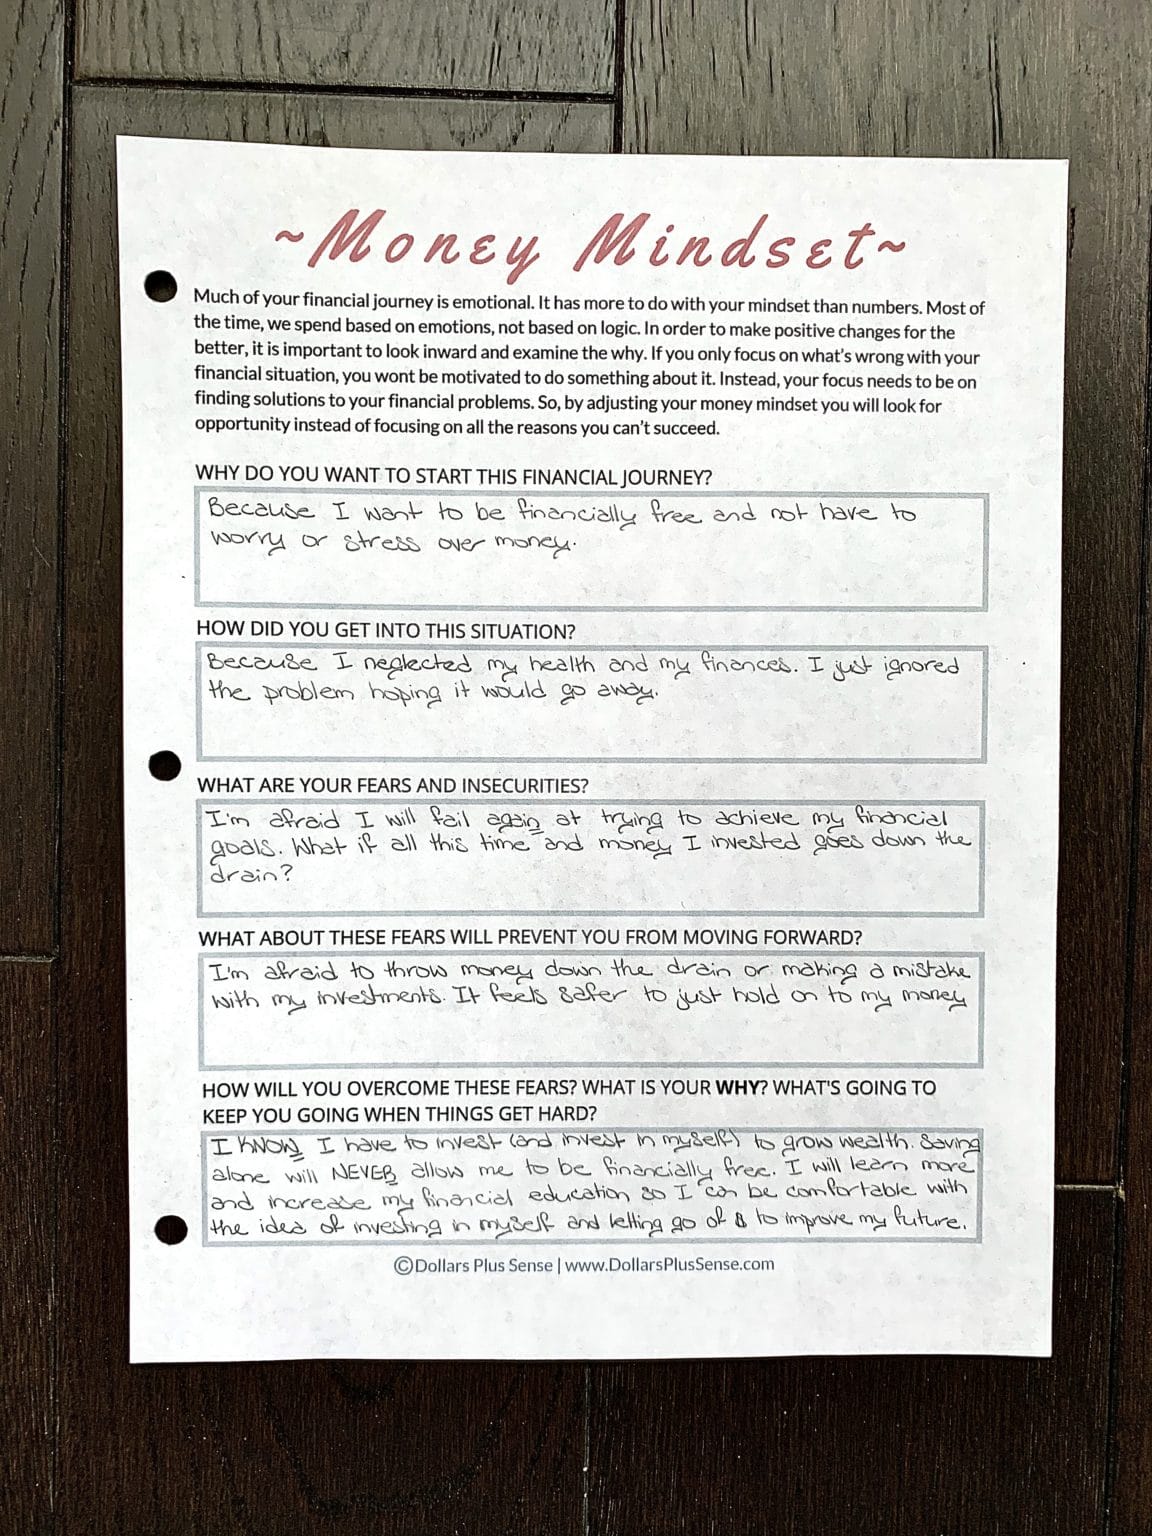 ~Money Mindset~
Much of your financial journey is emotional. It has more to do with your mindset than numbers. Most of
the time, we spend based on emotions, not based on logic. In order to make positive changes for the
better, it is important to look inward and examine the why. If you only focus on what's wrong with your
financial situation, you wont be motivated to do something about it. Instead, your focus needs to be on
finding solutions to your financial problems. So, by adjusting your money mindset you will look for
opportunity instead of focusing on all the reasons you can't succeed.
WHY DO YOU WANT TO START THIS FINANCIAL JOURNEY?
Because I want to be financially free and not have to
worry or stress over money.
HOW DID YOU GET INTO THIS SITUATION?
Because I neglected my health and my finances. I just ignored
the problem hoping it would go away.
WHAT ARE YOUR FEARS AND INSECURITIES?
I'm afraid I will fail again at trying to achieve my financial
goals. What if all this time and money I invested goes down the
drain?
WHAT ABOUT THESE FEARS WILL PREVENT YOU FROM MOVING FORWARD?
I'm afraid to throw money down the drain or making a mistake
with my investments. It feels safer to just hold on to my money
HOW WILL YOU OVERCOME THESE FEARS? WHAT IS YOUR WHY? WHAT'S GOING TO
KEEP YOU GOING WHEN THINGS GET HARD?
I KNOW I have to invest (and invest in myself) to grow wealth. Saving
alone will NEVER allow me to be financially free. I will learn more
and increase my financial education so I can be comfortable with
the idea of investing in myself and letting go of $ to improve my future.
©Dollars Plus Sense | www.DollarsPlusSense.com